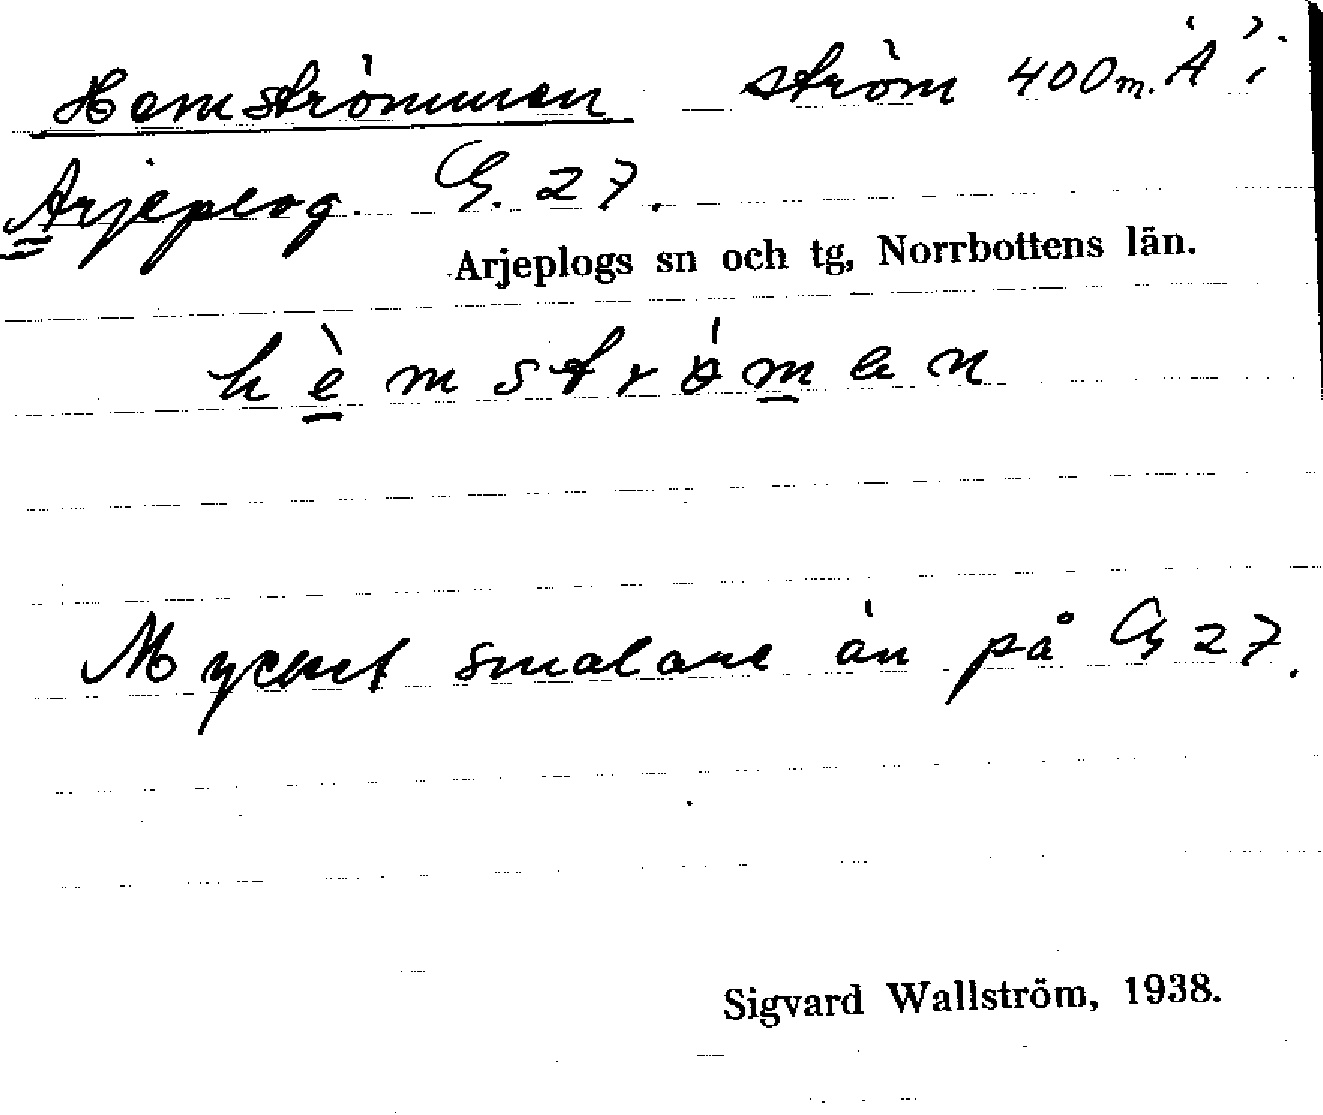 Hemströmmen ström 400 m. Å i
Arjeplog. G. 27.
Arjeplogs sn och tg, Norrbottens län.
hèmströ́men
Mycket smalare än på G 27.
Sigvard Wallström, 1938.